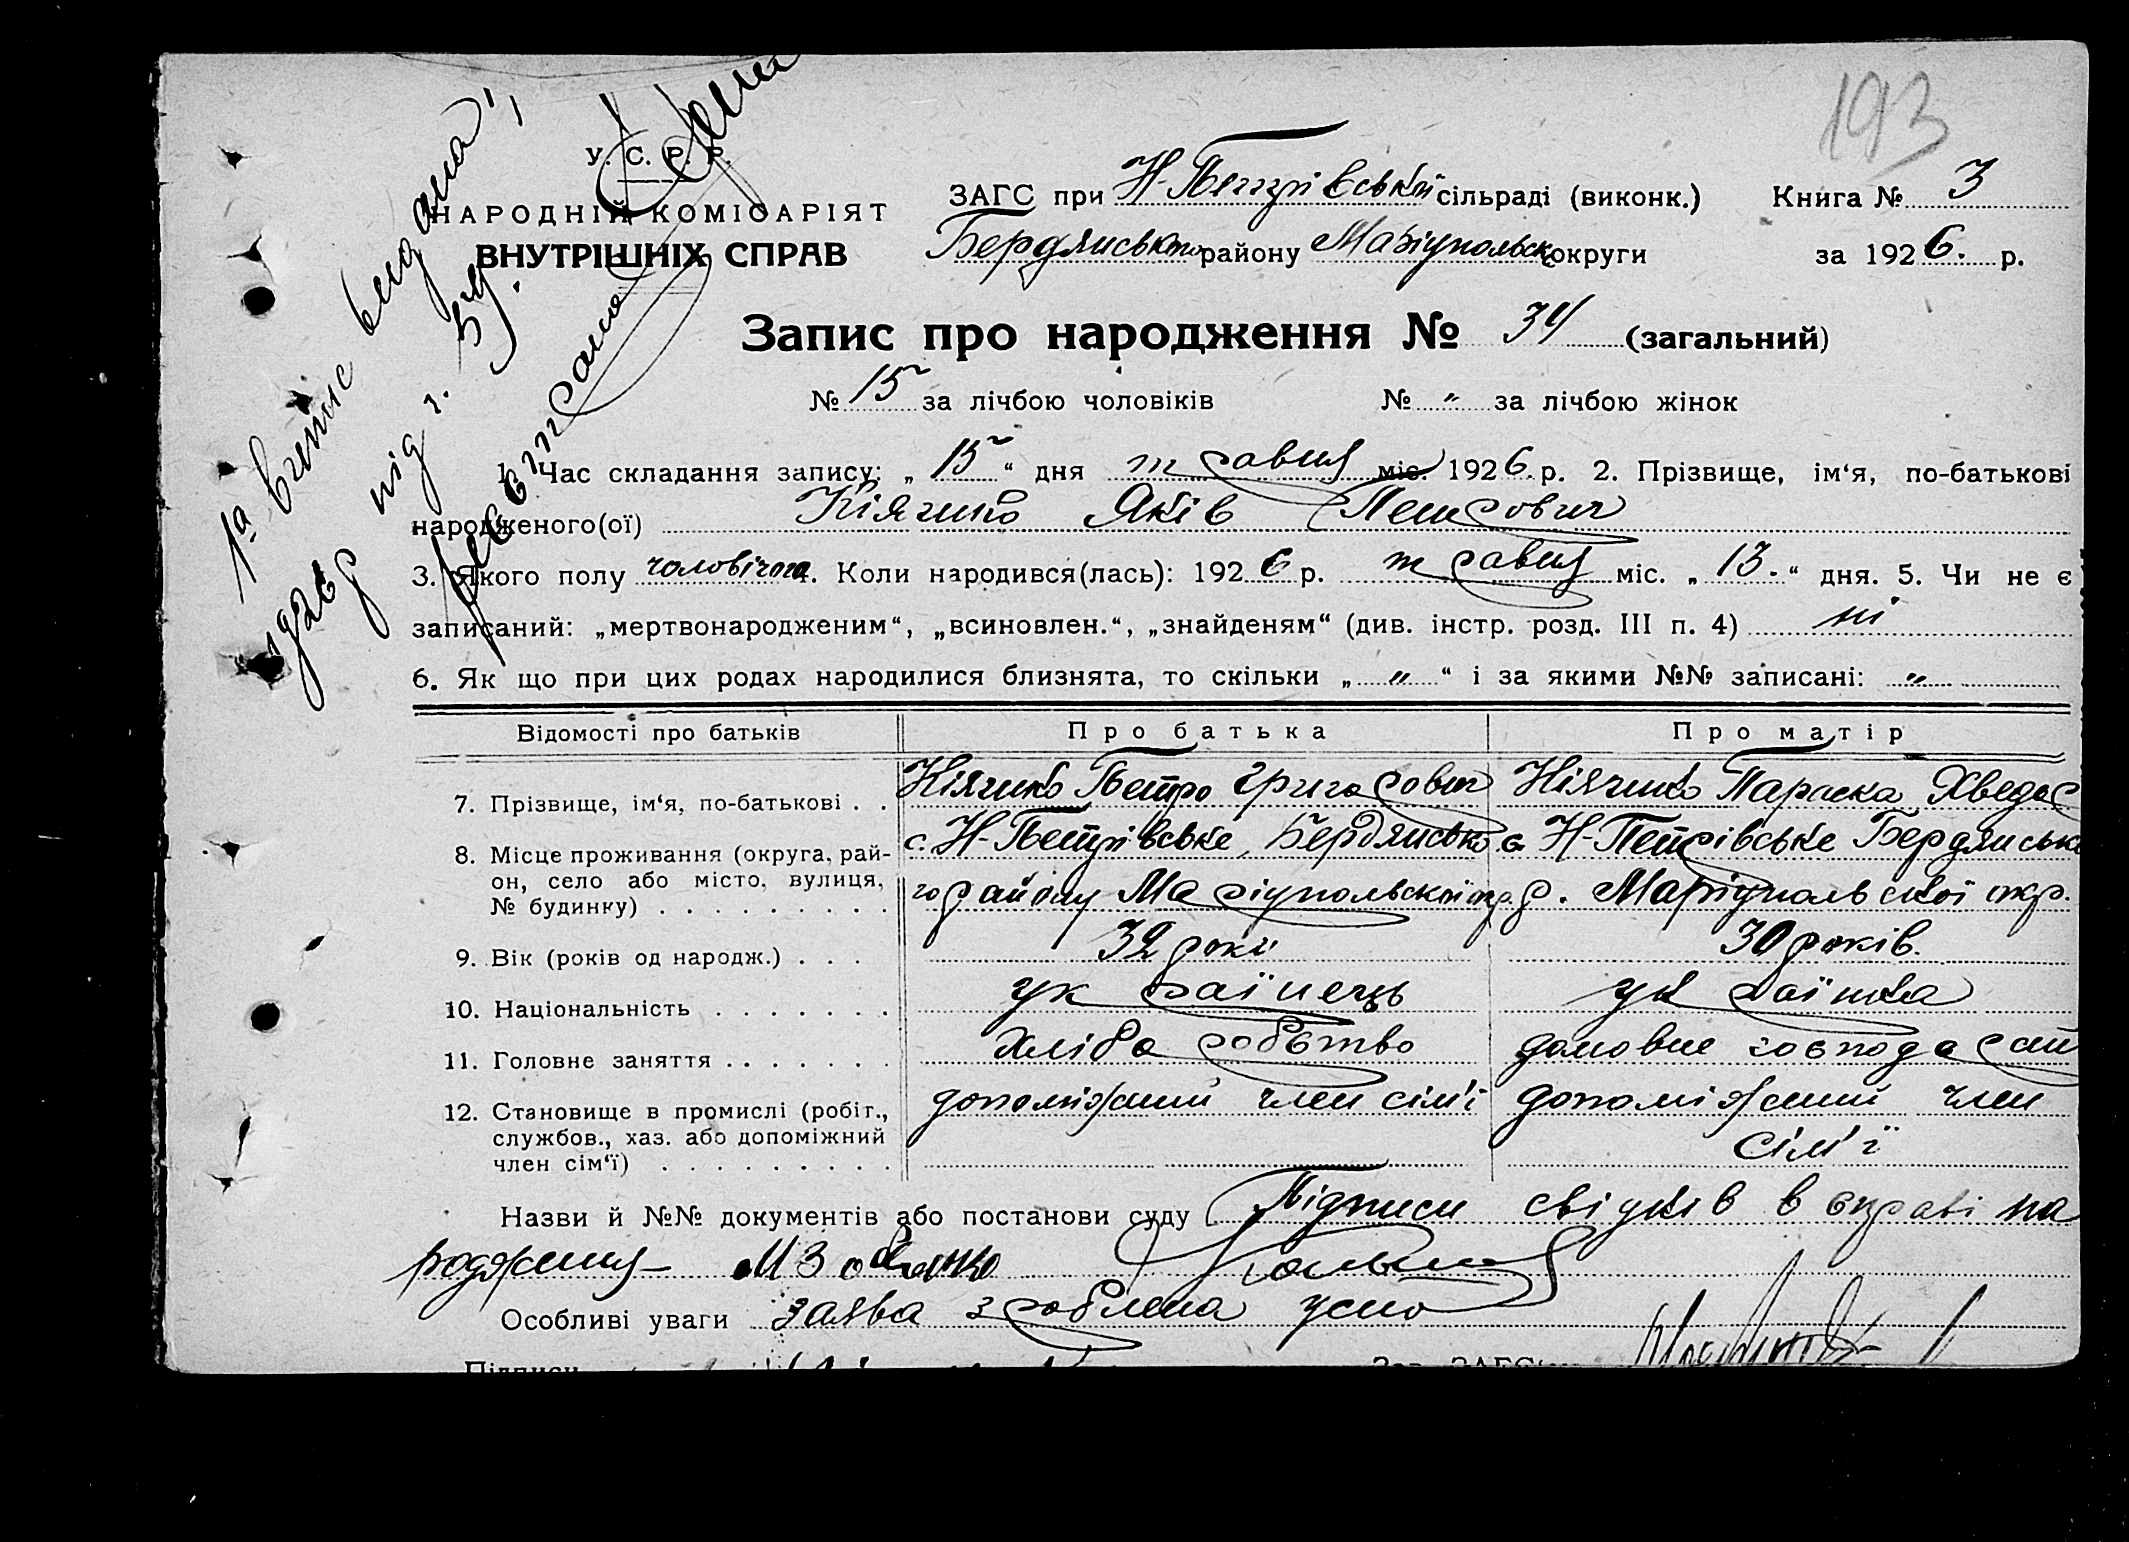 193
У. С. Р. Р.
НАРОДНІЙ КОМІСАРІЯТ
ВНУТРІШНІХ СПРАВ
ЗАГС при Н-Петрівській сільраді (виконк.) Книга № 3
Бердянського району Маріупольськ округи за 1926. р.
1а випис видана
Запис про народження № 34 (загальний)
№ 15 за лічбою чоловіків № " за лічбою жінок
1. Час складання запису: „ 15 “ дня травня міс. 1926 р. 2. Прізвище, ім‘я, по-батькові
народженого(ої) Кіячко Яків Петрович
3. Якого полу чоловічого 4. Коли народився(лась): 1926 р. травня міс. „ 13. “ дня. 5. Чи не є
записаний: „мертвонародженим“, „всиновлен.“, „знайденям“ (див. інстр. розд. III п. 4) ні
6. Як що при цих родах народилися близнята, то скільки „ " “ і за якими №№ записані: "
Відомості про батьків Про батька Про матір
7. Прізвище, ім‘я, по-батькові . . Петро Григорович Параска Хведор
8. Місце проживання (округа, рай- с. Н-Петрівське, Бердянсько с Н-Петрівське Бердянськ
он, село або місто, вулиця, го району Маріупольської окр. р. Маріупольської окр.
№ будинку) . . . . . . . . .
9. Вік (років од народж.) . . . 32 роки 30 років.
10. Національність . . . . . . . українець українка
11. Головне заняття . . . . . . . хліборобство домовне господар
12. Становище в промислі (робіт., допоміжний член сім'ї допоміжний член
службов., хаз. або допоміжний сім'ї
член сім‘ї) . . . . . . . . .
Назви й №№ документів або постанови суду Підписи свідків в справі на
родження
Особливі уваги заява зроблена усно
Підписи Зав. ЗАГС‘ом